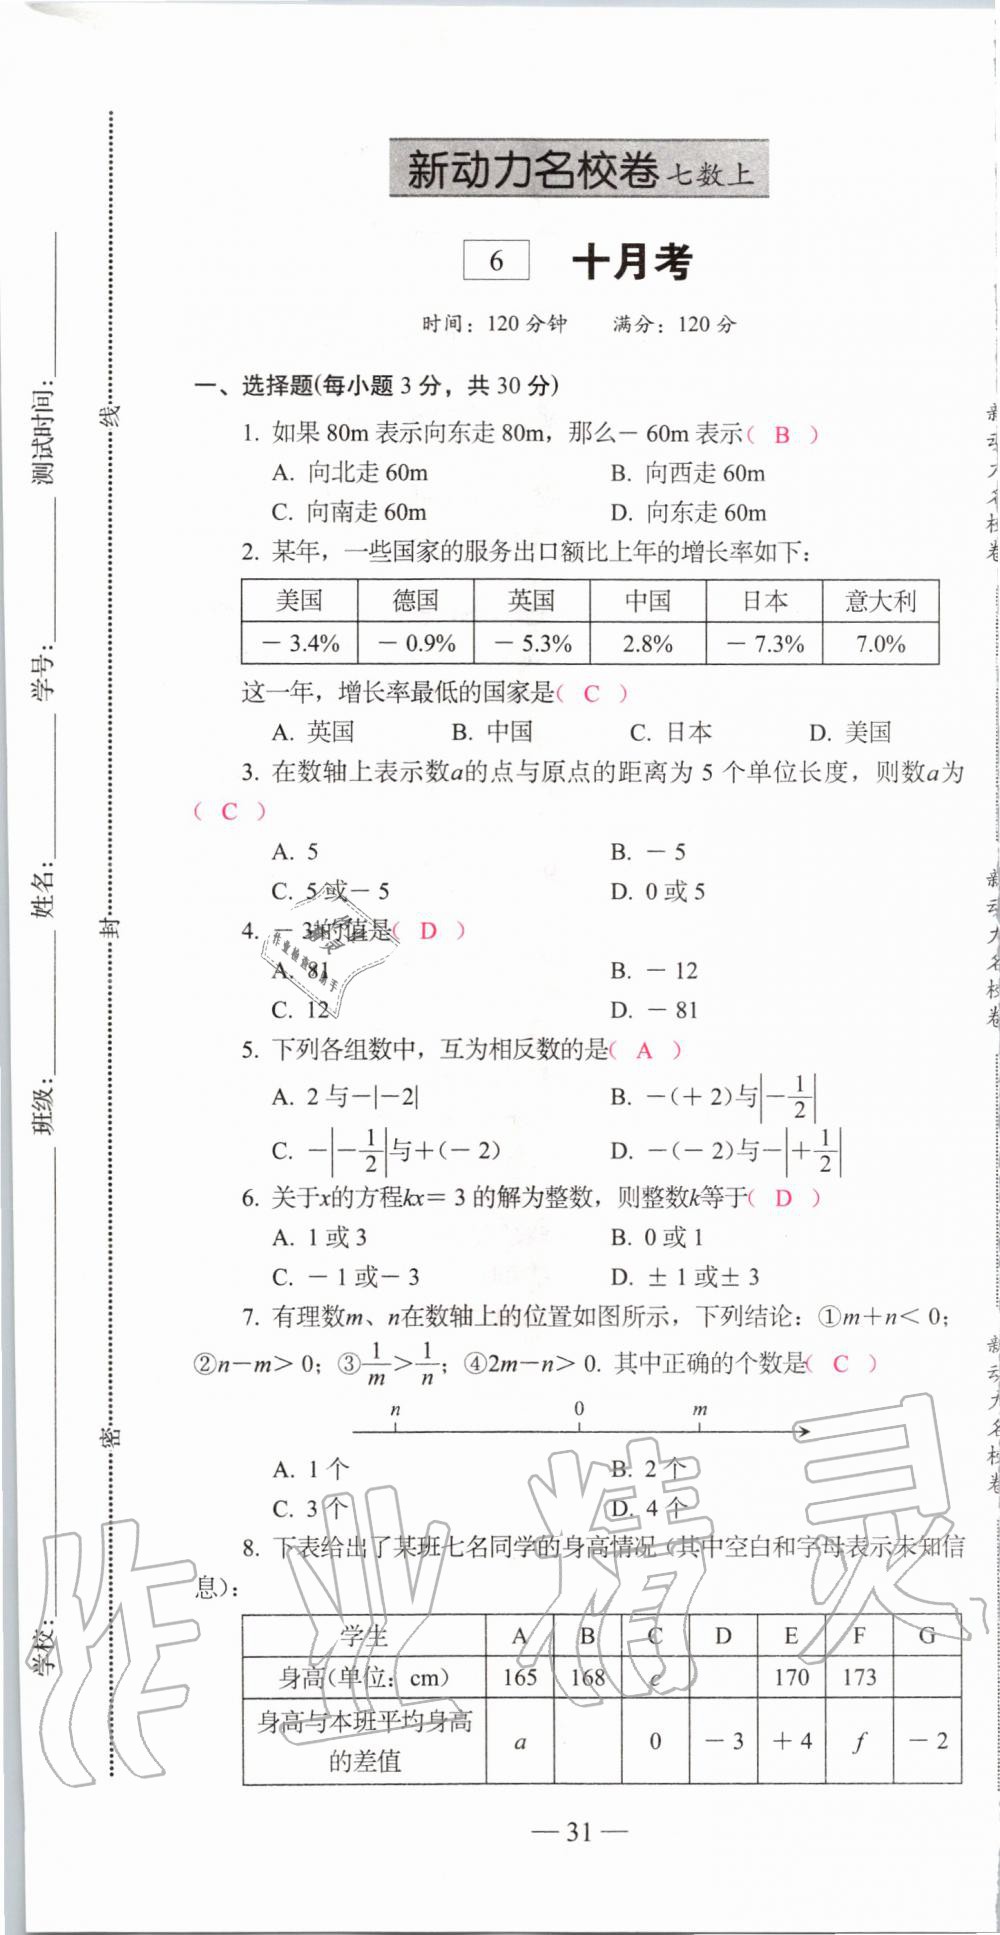 新动力名校卷 七数上
6 十月考
时间：120分钟 满分：120分
一、选择题(每小题3分，共30分)
1. 如果80m表示向东走80m，那么－60m表示( B )
A. 向北走60m B. 向西走60m
C. 向南走60m D. 向东走60m
2. 某年，一些国家的服务出口额比上年的增长率如下：
美国 德国 英国 中国 日本 意大利
－3.4% －0.9% －5.3% 2.8% －7.3% 7.0%
这一年，增长率最低的国家是( C )
A. 英国 B. 中国 C. 日本 D. 美国
3. 在数轴上表示数a的点与原点的距离为5个单位长度，则数a为
( C )
A. 5 B. －5
C. 5或－5 D. 0或5
4. －3 的值是( D )
A. 81 B. －12
C. 12 D. －81
5. 下列各组数中，互为相反数的是( A )
A. 2与－|－2| B. －(＋2)与|－1/2|
C. －|－1/2|与＋(－2) D. －(－2)与－|＋1/2|
6. 关于x的方程kx＝3的解为整数，则整数k等于( D )
A. 1或3 B. 0或1
C. －1或－3 D. ±1或±3
7. 有理数m、n在数轴上的位置如图所示，下列结论：①m＋n＜0；
②n－m＞0；③1/m＞1/n；④2m－n＞0. 其中正确的个数是( C )
n 0 m
A. 1个 B. 2个
C. 3个 D. 4个
8. 下表给出了某班七名同学的身高情况（其中空白和字母表示未知信
息）：
学生 A B C D E F G
身高(单位：cm) 165 168 c 170 173
身高与本班平均身高
的差值 a 0 －3 ＋4 f －2
— 31 —
学校： 班级： 姓名： 学号： 测试时间：
密 封 线
新动力名校卷
新动力名校卷
新动力名校卷
作业精灵
作业检查小助手